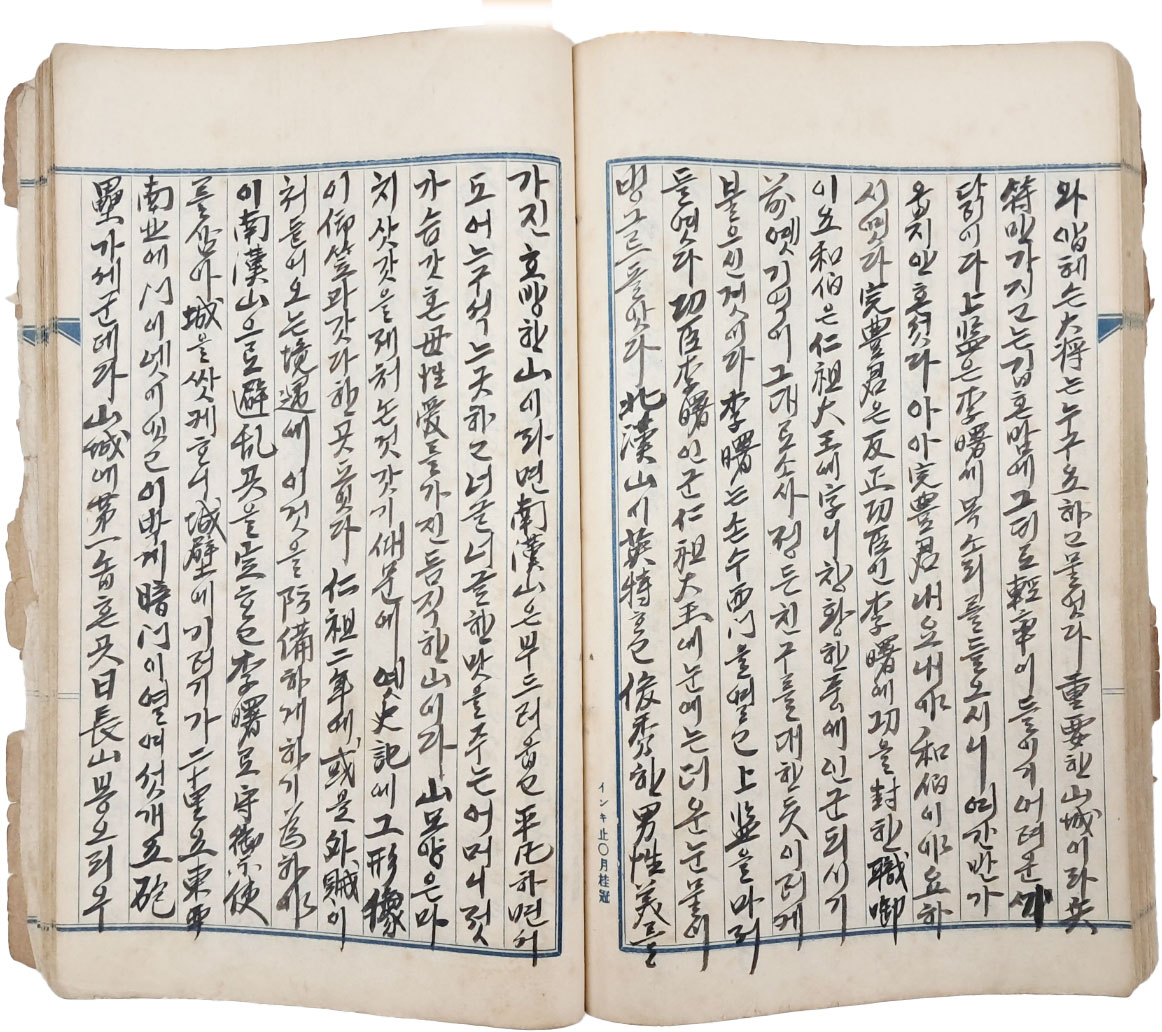 와 얌헤는 大将는 누구요 하고 물엇다 重要한 山城이라 其
符만 가지고는 깁흔 밤에 그터로 軽率이 들이기 어려운 까
닭이다 上監은 李曙에 목소리를 들으시니 여간 반가
옵지 안흔 것다 아아 完豊君 내요 내야 和伯이야 요 하
시엿다 完豊君은 反正功臣인 李曙에 功을 封한 職啣
이요 和伯은 仁祖大王에 字니 창황한 중에 인군되시기
前 옛 기억이 그대로 소사 정든 친구를 대한 듯 이러케
불으신 것이라 李曙는 손수 西门을 열고 上監을 마저
들엿다 功臣 李曙 인군 仁祖大王에 눈에는 더운 눈물이
벙그르 돌앗다 北漢山이 英特하고 俊秀한 男性美를
インキ止〇月桂冠
가진 호방한 山이라면 南漢山은 부드러웁고 平凡하면서
도 어느 구석는 굿하고 너글너글한 맛을 주는 어머니 젓
가슴 갓흔 母性愛를 가진 듬직한 山이라 山모양은 마
치 삿갓을 제처 논 것 갓기 때문에 옛 史記에 그 形像
이 仰笠과 갓다 한 곳 잇다 仁祖二年에 或은 外賊이
처들어오는 境遇에 이것을 防備하게 하기 為하야
이 南漢山으로 避乱곳을 定하고 李曙로 守禦使
를 삼아 城을 쌋케 하니 城壁에 기럭기가 二十里요 東西
南北에 门이 넷이 잇고 이 박게 暗门이 열여섯 개 五 砲
壘가 세 군데라 山城에 第一 놉흔 곳 日長山 봉오리 우